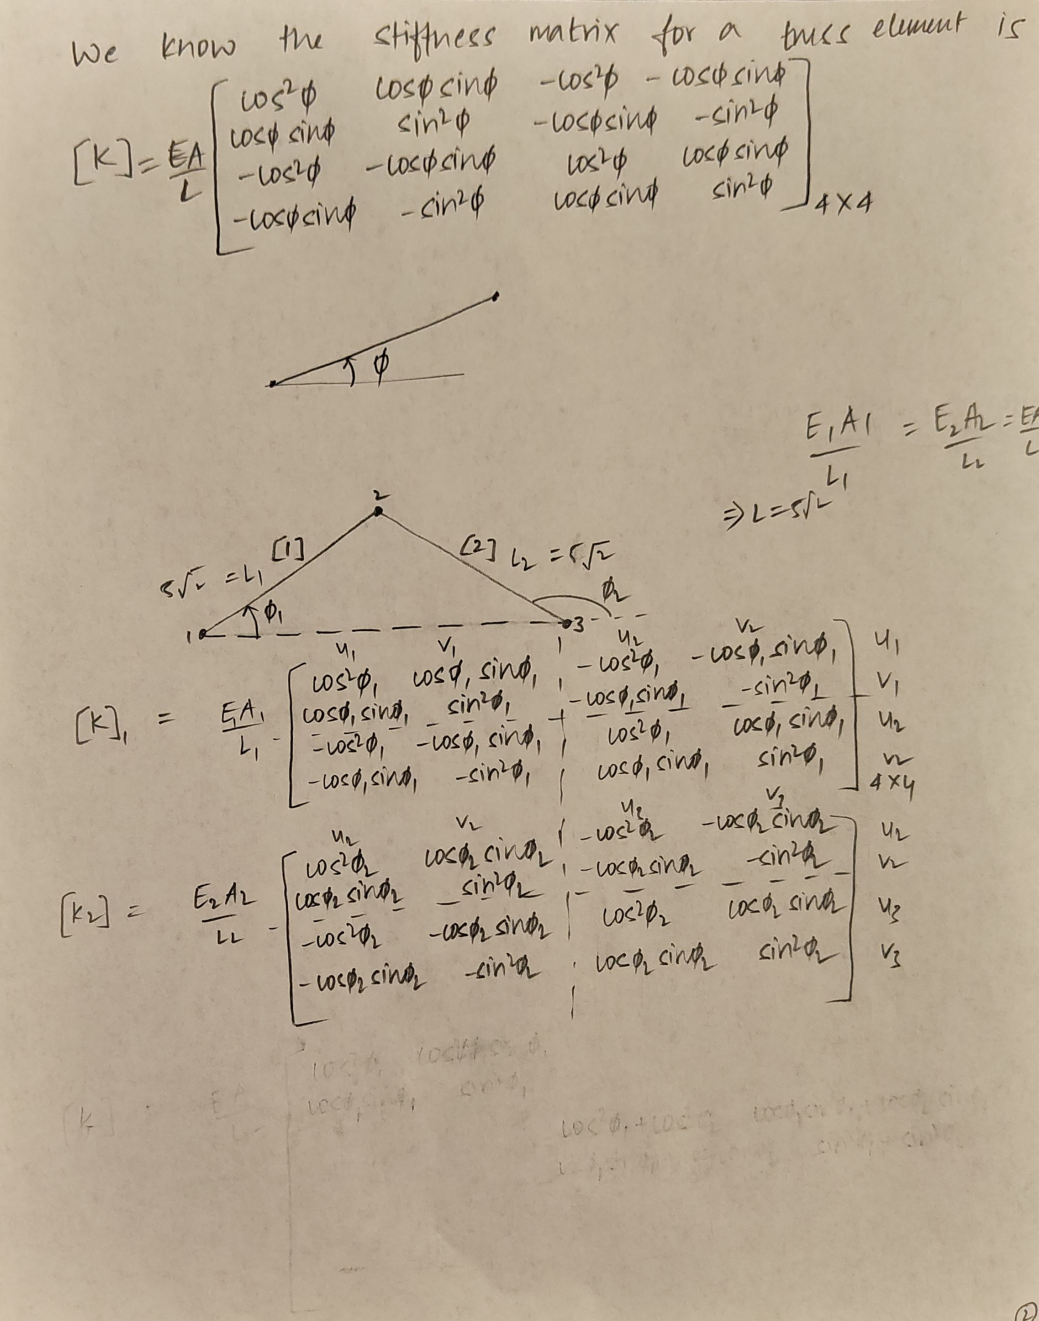 We know the stiffness matrix for a truss element is
cos²φ cosφ sinφ -cos²φ - cosφ sinφ
cosφ sinφ sin²φ -cosφsinφ -sin²φ
[K] = EA/L -cos²φ -cosφsinφ cos²φ cosφ sinφ
-cosφsinφ -sin²φ cosφ sinφ sin²φ 4×4
φ
E₁A₁/L₁ = E₂A₂/L₂ = EA/L
⇒ L = 5√2
2
[1] [2] L₂ = 5√2
5√2 = L₁
φ₁ φ₂
1 3
u₁ v₁ u₂ v₂
cos²φ₁ cosφ₁ sinφ₁ -cos²φ₁ -cosφ₁ sinφ₁ u₁
cosφ₁ sinφ₁ sin²φ₁ -cosφ₁sinφ₁ -sin²φ₁ v₁
[K]₁ = E₁A₁/L₁ -cos²φ₁ -cosφ₁ sinφ₁ cos²φ₁ cosφ₁ sinφ₁ u₂
-cosφ₁sinφ₁ -sin²φ₁ cosφ₁ sinφ₁ sin²φ₁ v₂
4×4
u₂ v₂ u₃ v₃
cos²φ₂ cosφ₂ sinφ₂ -cos²φ₂ -cosφ₂ sinφ₂ u₂
cosφ₂ sinφ₂ sin²φ₂ -cosφ₂sinφ₂ -sin²φ₂ v₂
[K₂] = E₂A₂/L₂ -cos²φ₂ -cosφ₂ sinφ₂ cos²φ₂ cosφ₂ sinφ₂ u₃
-cosφ₂ sinφ₂ -sin²φ₂ cosφ₂ sinφ₂ sin²φ₂ v₃
2